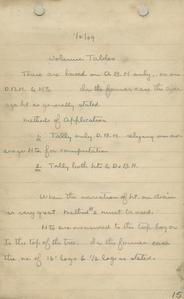 1/2/09
Volume Tables
These are based on D.B.H. only, or on
D.B.H. & Hts. In the former case the aver-
age ht. is generally stated.
Methods of Application
1. Tally only D.B.H. relying on
average Hts for computation
2. Tally both hts & D.B.H.
When the variation of ht. on
is very great method 2 must be used.
Hts are measured to the top log or
to the top of the tree. In the former case
the no. of 16' logs & 1/2 logs is stated.
15